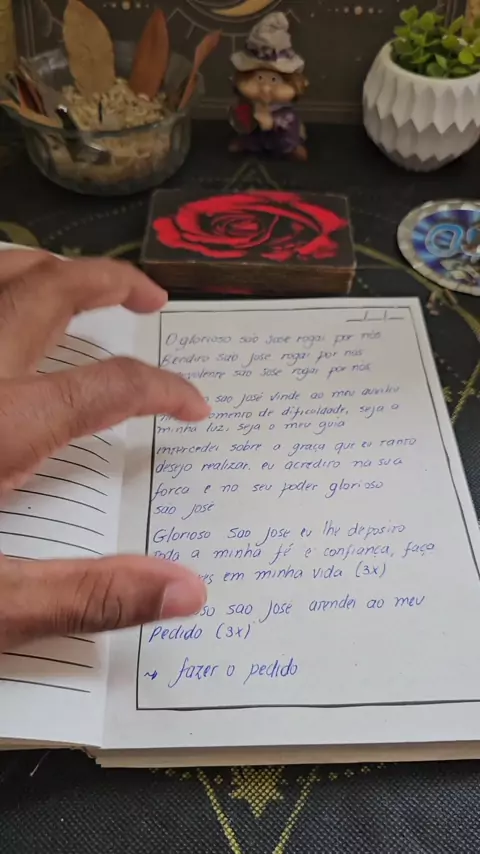 O glorioso são José rogai por nós
Bendito são José rogai por nós
são José rogai por nós
são José vinde ao meu auxílio
momento de dificuldade, seja a
minha luz, seja o meu guia
sobre a graça que eu tanto
desejo realizar, eu acredito na sua
força e no seu poder glorioso
são José
Glorioso São José eu lhe deposito
toda a minha fé e confiança, faça
em minha vida (3x)
são José atendei ao meu
Pedido (3x)
→ fazer o pedido